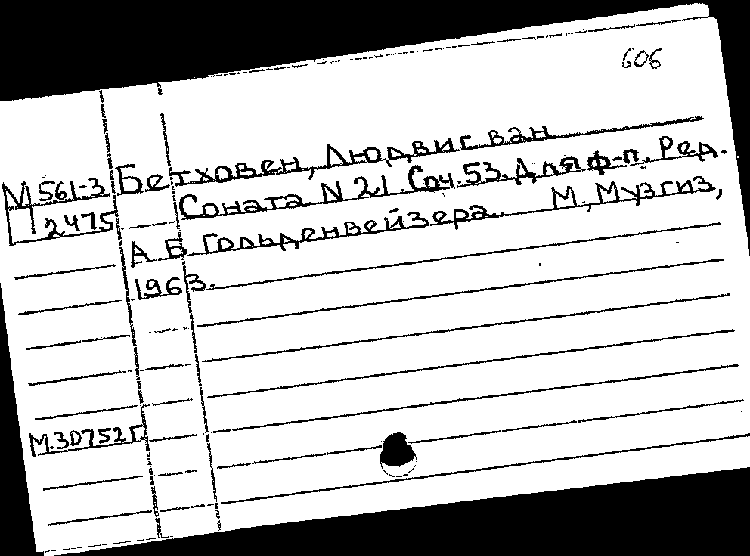 606
М 561-3
2475
Бетховен, Людвиг ван
Соната N 21. Соч. 53. Для ф-п. Ред.
А Б Гольденвейзера. М, Музгиз,
1963.
М.30752г.